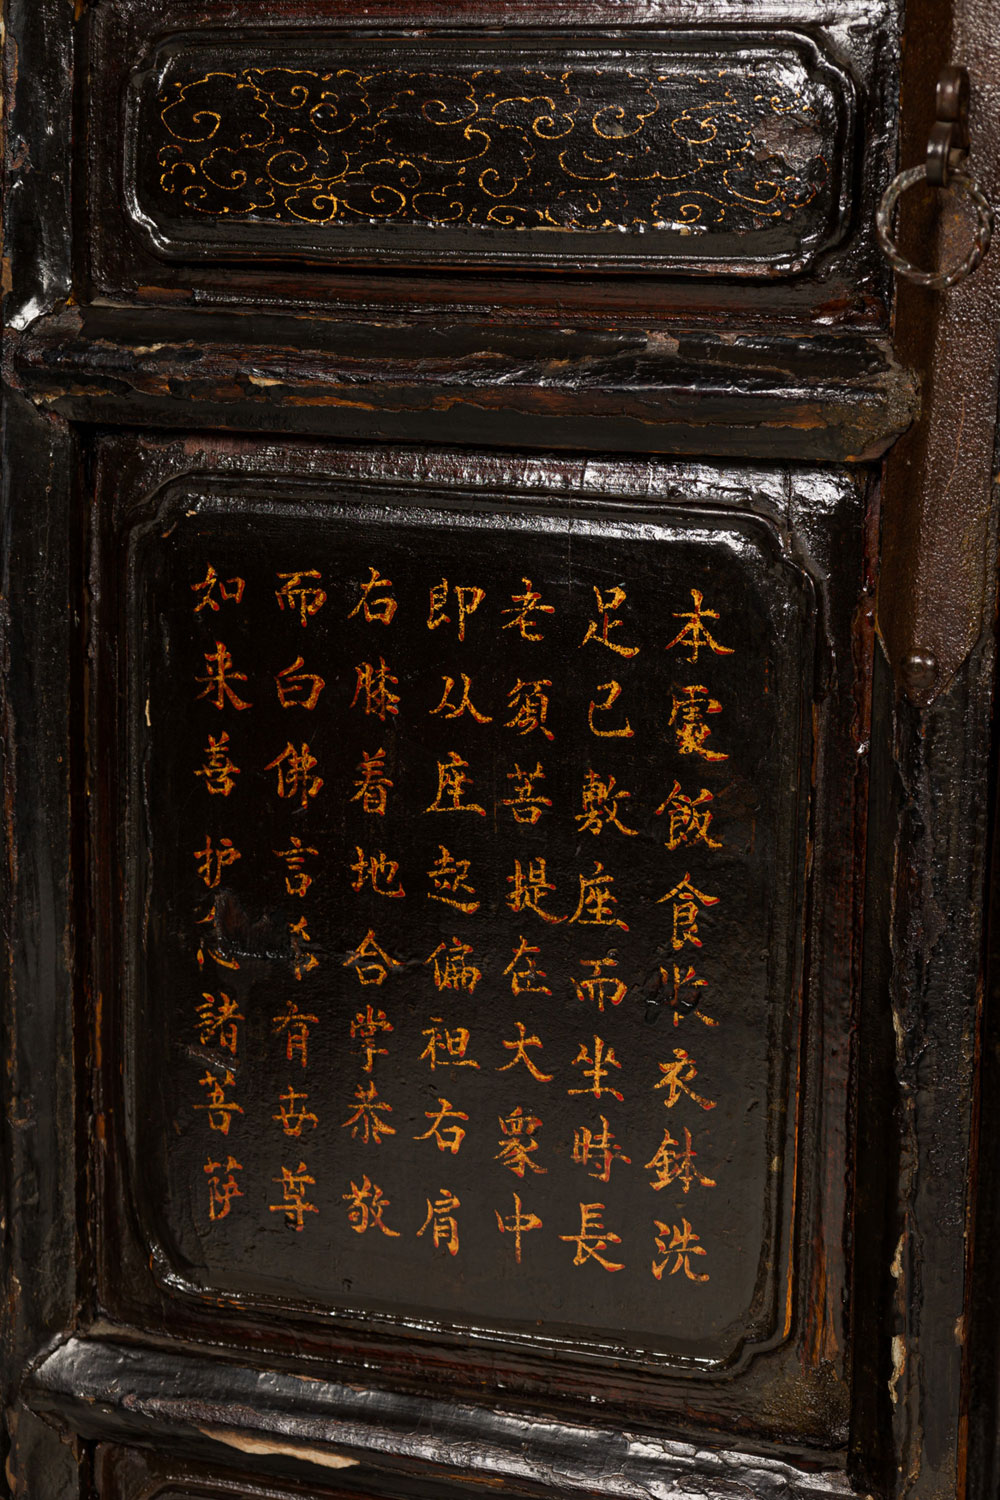 本處飯食收衣鉢洗
足已敷座而坐時長
老須菩提在大衆中
即从座起偏袒右肩
右膝着地合掌恭敬
而白佛言希有世尊
如来善护念諸菩萨